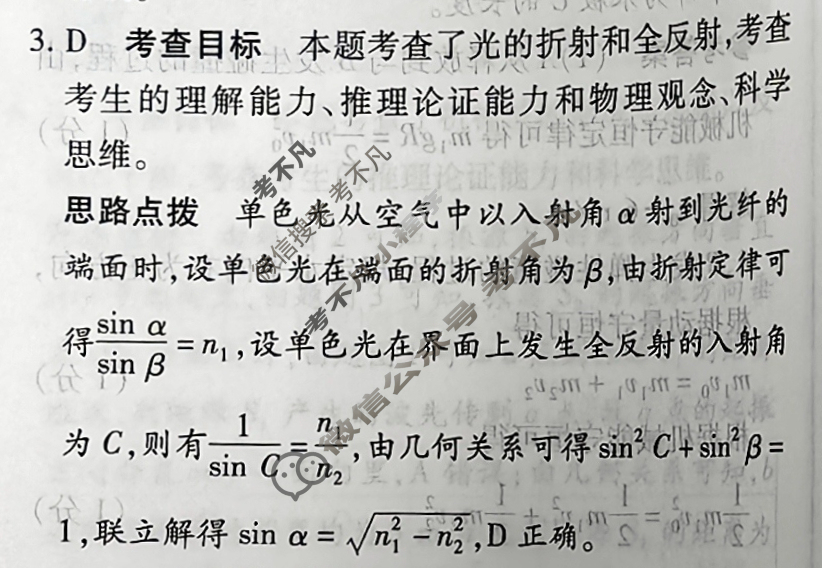 3. D 考查目标 本题考查了光的折射和全反射,考查
考生的理解能力、推理论证能力和物理观念、科学
思维。
思路点拨 单色光从空气中以入射角 α 射到光纤的
端面时,设单色光在端面的折射角为 β,由折射定律可
得 sin α / sin β = n₁,设单色光在界面上发生全反射的入射角
为 C,则有 1 / sin C = n₁ / n₂,由几何关系可得 sin² C + sin² β =
1,联立解得 sin α = √(n₁² − n₂²),D 正确。
考不凡
微信搜索考不凡
考不凡小程序
微信公众号 考不凡